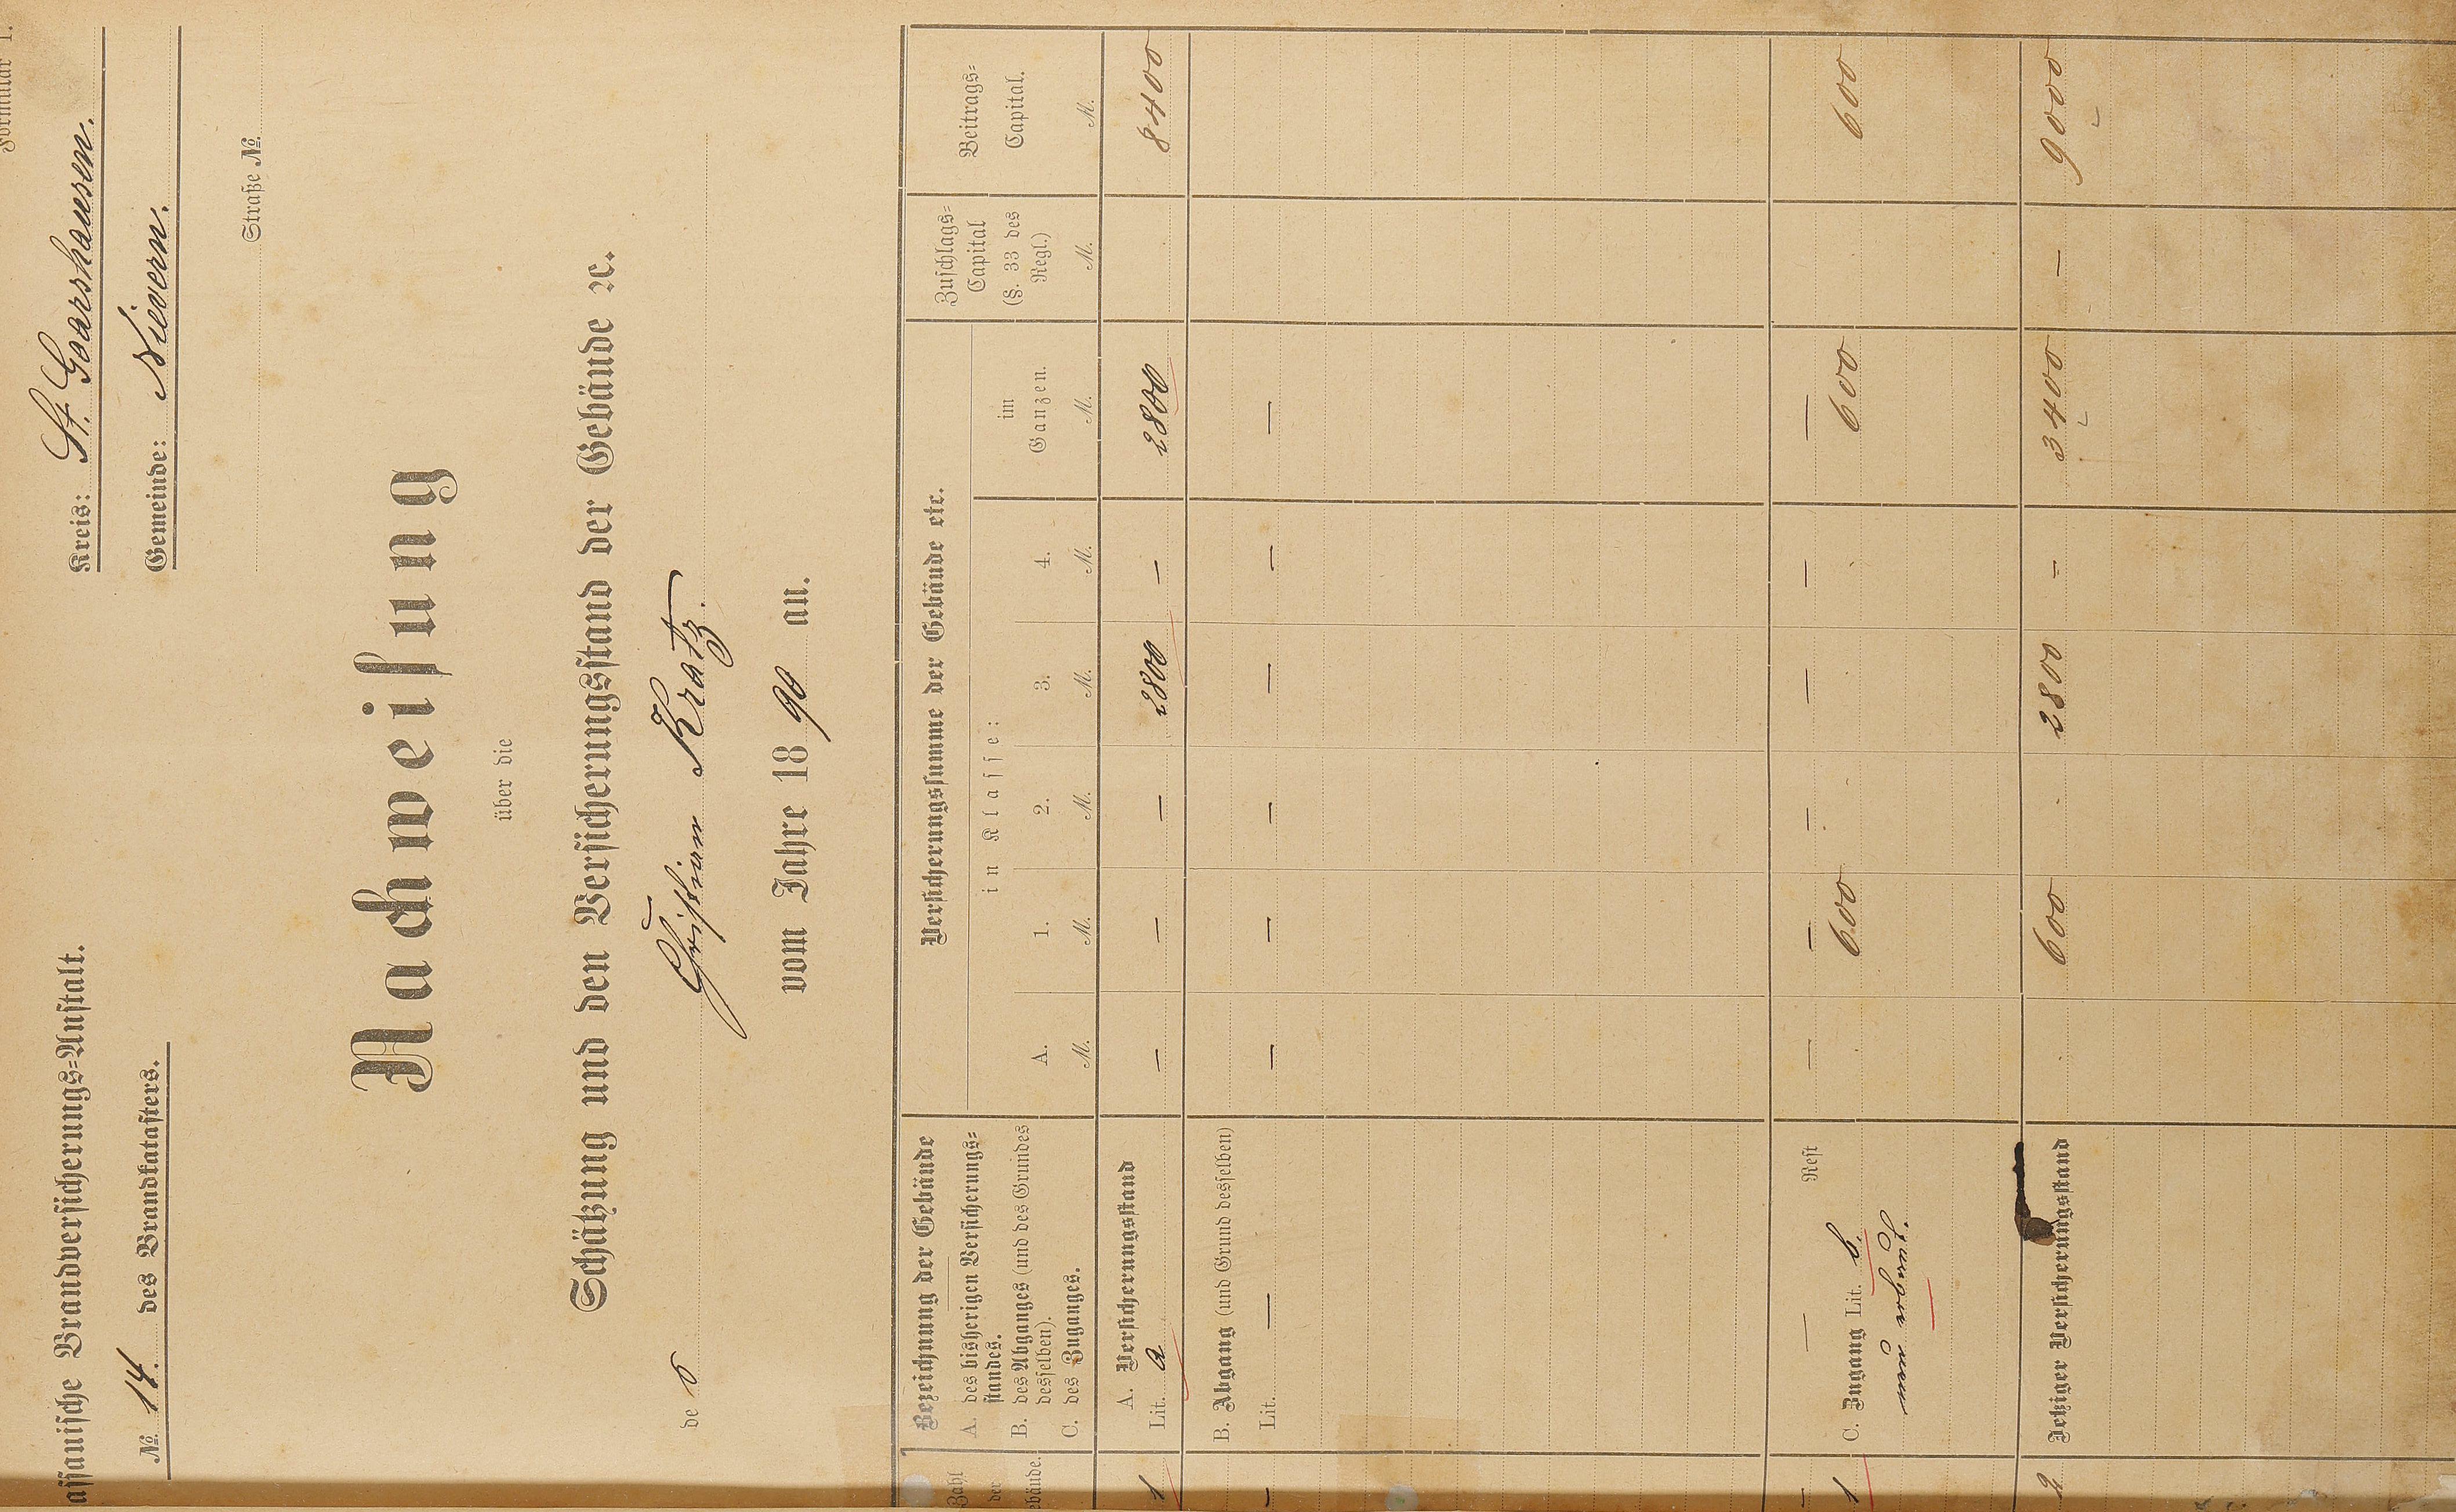 Formular 1.
assauische Brandversicherungs=Anstalt.
Kreis: St. Goarshausen.
№ 14. des Brandkatasters.
Gemeinde: Nievern.
Straße №
Nachweisung
über die
Schätzung und den Versicherungsstand der Gebäude ꝛc.
de s Christian Kratz.
vom Jahre 1890 an.
Zahl der ebäude.
Bezeichnung der Gebäude
A. des bisherigen Versicherungs=
standes.
B. des Abganges (und des Grundes
desselben).
C. des Zuganges.
Versicherungssumme der Gebäude etc.
in Klasse:
A. 1. 2. 3. 4. im Ganzen.
M. M. M. M. M. M.
Zuschlags=
Capital
(§. 33 des
Regl.)
M.
Beitrags=
Capital.
M.
A. Versicherungsstand
1 Lit. a — — — 2800 — 2800 8400
B. Abgang (und Grund desselben)
— Lit. — — — — — — —
— — Rest — — — — — —
1 C. Zugang Lit. b. 600 600 600
neu erbaut.
2 Jetziger Versicherungsstand 600 2800 — 3400 — 9000